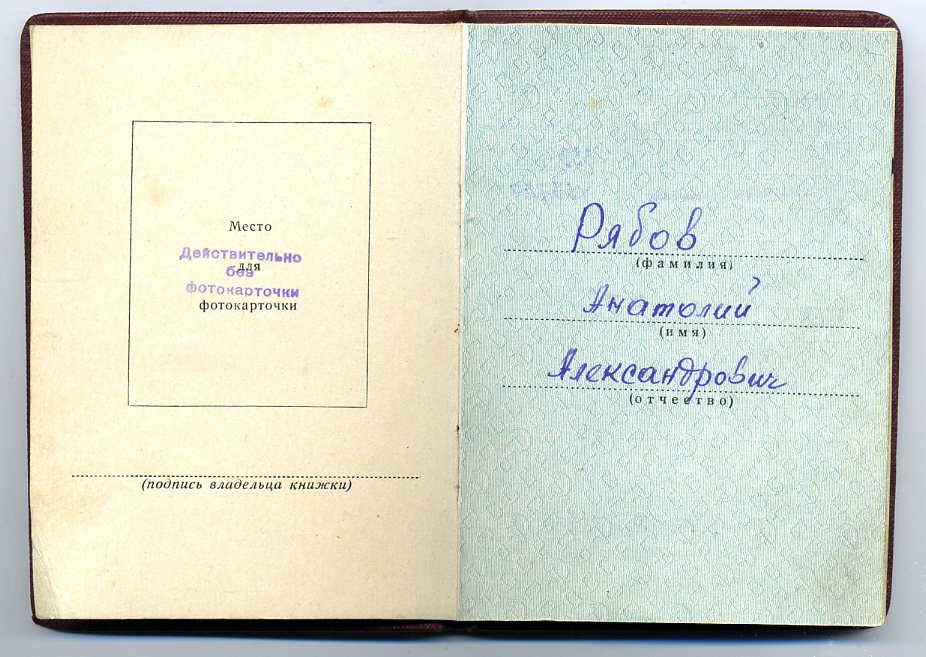 Место
Действительно
для
без
фотокарточки
фотокарточки
(подпись владельца книжки)
Рябов
(фамилия)
Анатолий
(имя)
Александрович
(отчество)